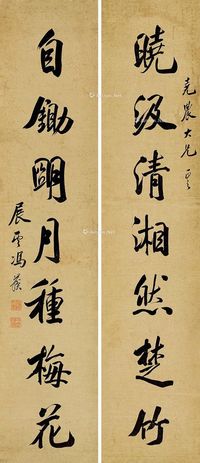 曉汲清湘然楚竹
堯農大兄正之
自鋤明月種梅花
展雲馮譽